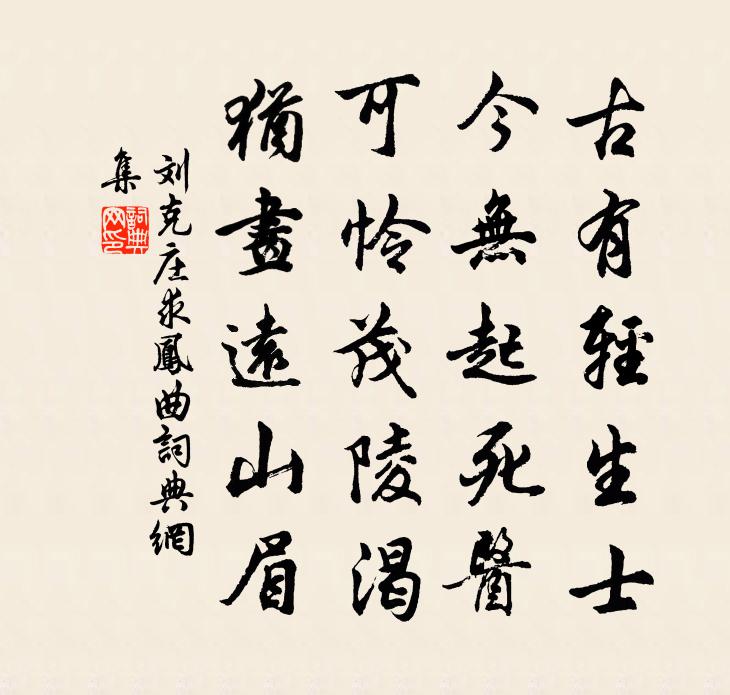 古有輕生士
今無起死醫
可憐茂陵渴
猶畫遠山眉
刘克庄求鳳曲詞典網
集
詞典
网印